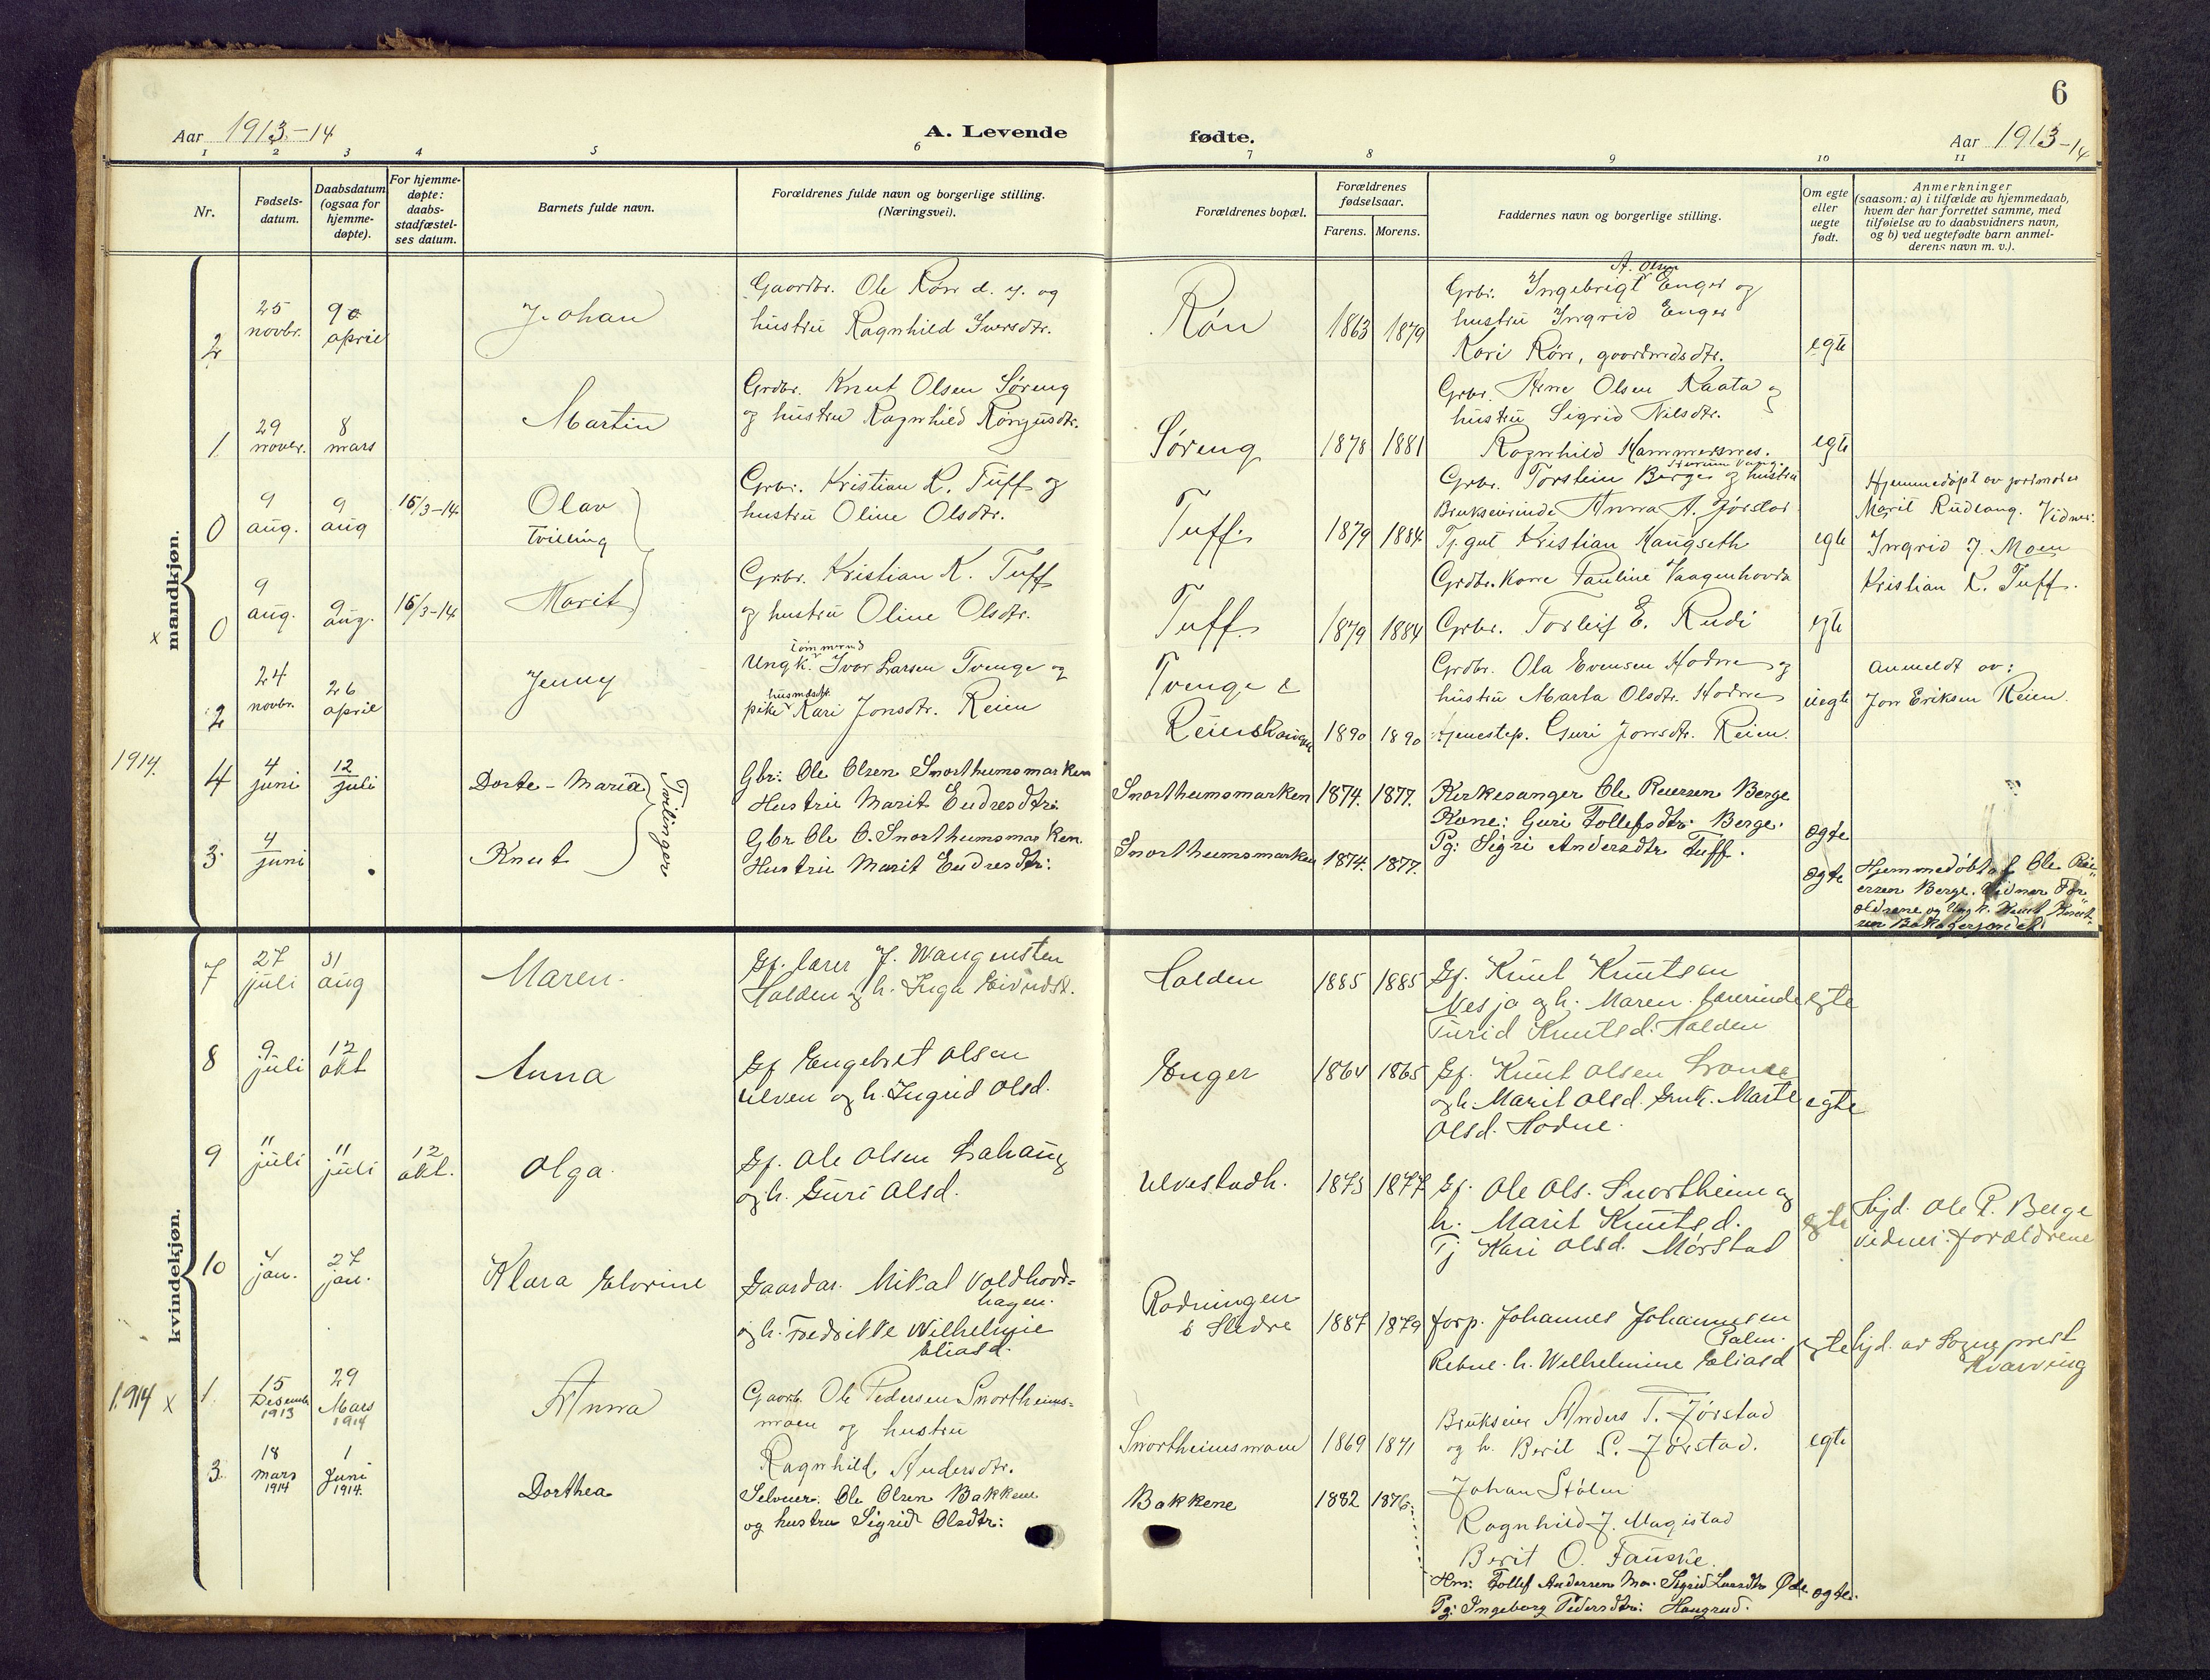 6
Aar 1913-14
A. Levende
fødte.
Aar 1913-14
1 2 3 4 5 6 7 8 9 10 11
Nr.
Fødsels-
datum.
Daabsdatum
(ogsaa for
hjemme-
døpte).
For hjemme-
døpte:
daabs-
stadfæstel-
ses datum.
Barnets fulde navn.
Forældrenes fulde navn og borgerlige stilling.
(Næringsvei).
Forældrenes bopæl.
Forældrenes
fødselsaar.
Farens. Morens.
Faddernes navn og borgerlige stilling.
Om egte
eller
uegte
født.
Anmerkninger
(saasom: a) i tilfælde av hjemmedaab,
hvem der har forrettet samme, med
tilføielse av to daabsvidners navn,
og b) ved uegtefødte barn anmel-
derens navn m. v.).
mandkjøn.
2
25
novbr.
9
april
Johan
Gaardbr. Ole Røn d. y. og
hustru Ragnhild Iversdtr.
Røn
1863 1879
A. Olsen
Grbr. Ingebrigt Enger og
hustru Ingrid Enger
Kari Røn, gaardmdsdtr.
egte
1
29
novbr.
8
mars
Martin
Grdbr. Knut Olsen Søreng
og hustru Ragnhild Røngusdtr.
Søreng
1878 1881
Grbr. Arne Olsen Raata og
hustru Sigrid Nilsdtr.
Ragnhild Hammersnes.
egte
0
9
aug.
9
aug
15/3-14
Olav
Tvilling
Grbr. Kristian K. Tuff og
hustru Oline Olsdtr.
Tuff.
1879 1884
Grbr. Torstein Berge og hustru
Brukseierinde Anna A. Jørstad
Tj.gut Kristian Haugseth
Grdbr.kone Pauline Vaagenhovda
egte
Hjemmedøpt av jordmoder
Marit Rudlang. Vidner:
Ingrid J. Moen
Kristian K. Tuff.
0
9
aug.
9
aug.
15/3-14
Marit
Grbr. Kristian K. Tuff
og hustru Oline Olsdtr.
Tuff.
1879 1884
Grbr. Torleif E. Rudi
egte
x
2
24
novbr.
26
april
Jenny
tømmermd
Ungk. Ivar Larsen Tvenge og
husmdsdtr.
pike Kari Jonsdtr. Reien
Tvenge &
1890 1890
Grdbr. Ola Evensen Hodne og
hustru Marta Olsdtr. Hodne
tjenestep. Guri Jonsdtr. Reien.
uegte
Anmeldt av:
Jon Eriksen Reien.
1914.
4
4
juni
12
juli
Dorte-Maria
Tvilinger
Gbr: Ole Olsen Snortheimsmarken
Hustru Marit Endresdtr:
Snortheimsmarken
1874. 1877.
Kirkesanger Ole Reiersen Berge
Kone: Guri Tollefsdtr. Berge.
Pg: Sigri Andersdtr Tuff.
ægte
3
4
juni
Knut
Gbr Ole O. Snortheimsmarken.
Hustru Marit Endresdtr:
Snortheimsmarken
1874. 1877.
ægte
Hjemmedøbt af Ole Rei-
ersen Berge. Vidner For-
ældrene og Ungk.
kvindekjøn.
7
27
juli
31
aug
Maren.
Gf. lærer J. Wangensten
Halden og h. Inga Eivindsd.
Halden
1885 1885
Gf. Knut Knutsen
Nesja og h. Maren. lærerinde
Turid Knutsd. Halden
egte
8
9
juli
12
okt
Anna
Gf Engebret Olsen
Ulven og h. Ingrid Olsd.
Enger
1864 1865
Gf. Knut Olsen
og h. Marit Olsd. Gmk. Marte
Olsd. Hodne.
egte
9
11
juli
11
juli
12
okt.
Olga.
Gf. Ole Olsen Lahaug
og h. Guri Olsd.
Ulvestadh.
1873 1877
Gf. Ole Ols. Snortheim og
h. Marit Knutsd.
Tj Kari Olsd. Mørstad
egte
Hjd. Ole R. Berge
vidner: forældrene
10
4
jan.
27
jan.
Klara Elorine
Gaardar. Mikal Voldhovd-
hagen.
og h. Fredrikke Wilhelmine
Eliasd.
Rødningen
S Slidre
1887 1879
forp. Johannes Johannesen
Palm.
Rebne. h. Wilhelmine Eliasd
egte
hjd. av Sogneprest
Kvarving
1914 x
1.
15
Desember
1913
29
Mars
1914
Anna
Gaardb. Ole Pedersen Snortheims-
moen og hustru
Ragnhild Andersdtr.
Snortheimsmoen
1869 1871
Brukseier Anders T. Jørstad
og h. Berit S. Jørstad.
Johan Stølen
Ragnhild J. Magistad
Berit O. Fauske.
egte
3.
18
mars
1914
1
Juni
1914.
Dorthea
Selveier. Ole Olsen Bakkene
og hustru Sigrid Olsdtr:
Bakkene
1882 1876.
Hm: Tollef Andersen Mo. Sigrid Larsdtr Øde.
Pg: Ingeborg Pedersdtr: Haugrud.
ægte.